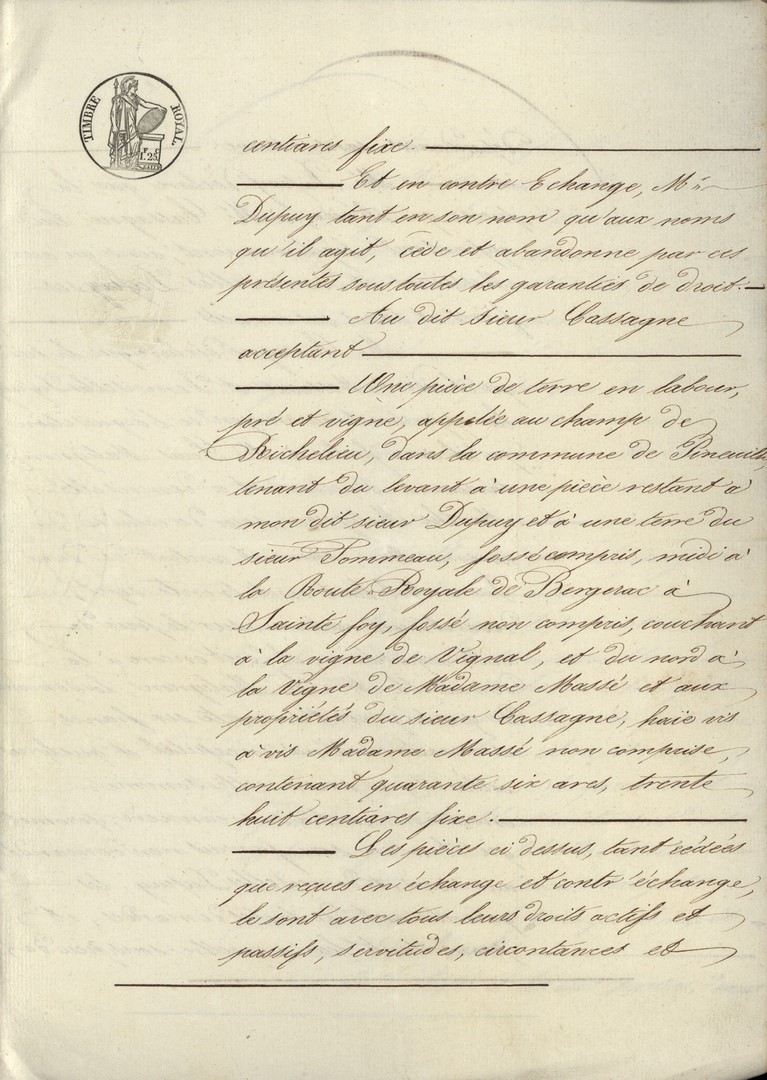 TIMBRE ROYAL
F C
1.25
centiares fixe.
Et en contre Echange, Mr
Dupuy tant en son nom qu'aux noms
qu'il agit, cède et abandonne par ces
présentes sous toutes les garanties de droit.
Au dit sieur Cassagne
acceptant
Une pièce de terre en labour,
pré et vigne, appelée au champ de
Richelieu, dans la commune de Pineuilh,
tenant du levant à une pièce restant à
mon dit sieur Dupuy et à une terre du
sieur Pommeau, fossé compris, midi à
la Route Royale de Bergerac à
Sainte foy, fossé non compris, couchant
à la vigne de Vignal, et du nord à
la Vigne de Madame Massé et aux
propriétés du sieur Cassagne, haïe vis
à vis Madame Massé non comprise,
contenant quarante six ares, trente
huit centiares fixe.
Les pièces ci dessus, tant cédées
que reçues en échange et contr'échange,
le sont avec tous leurs droits actifs et
passifs, servitudes, circontances et